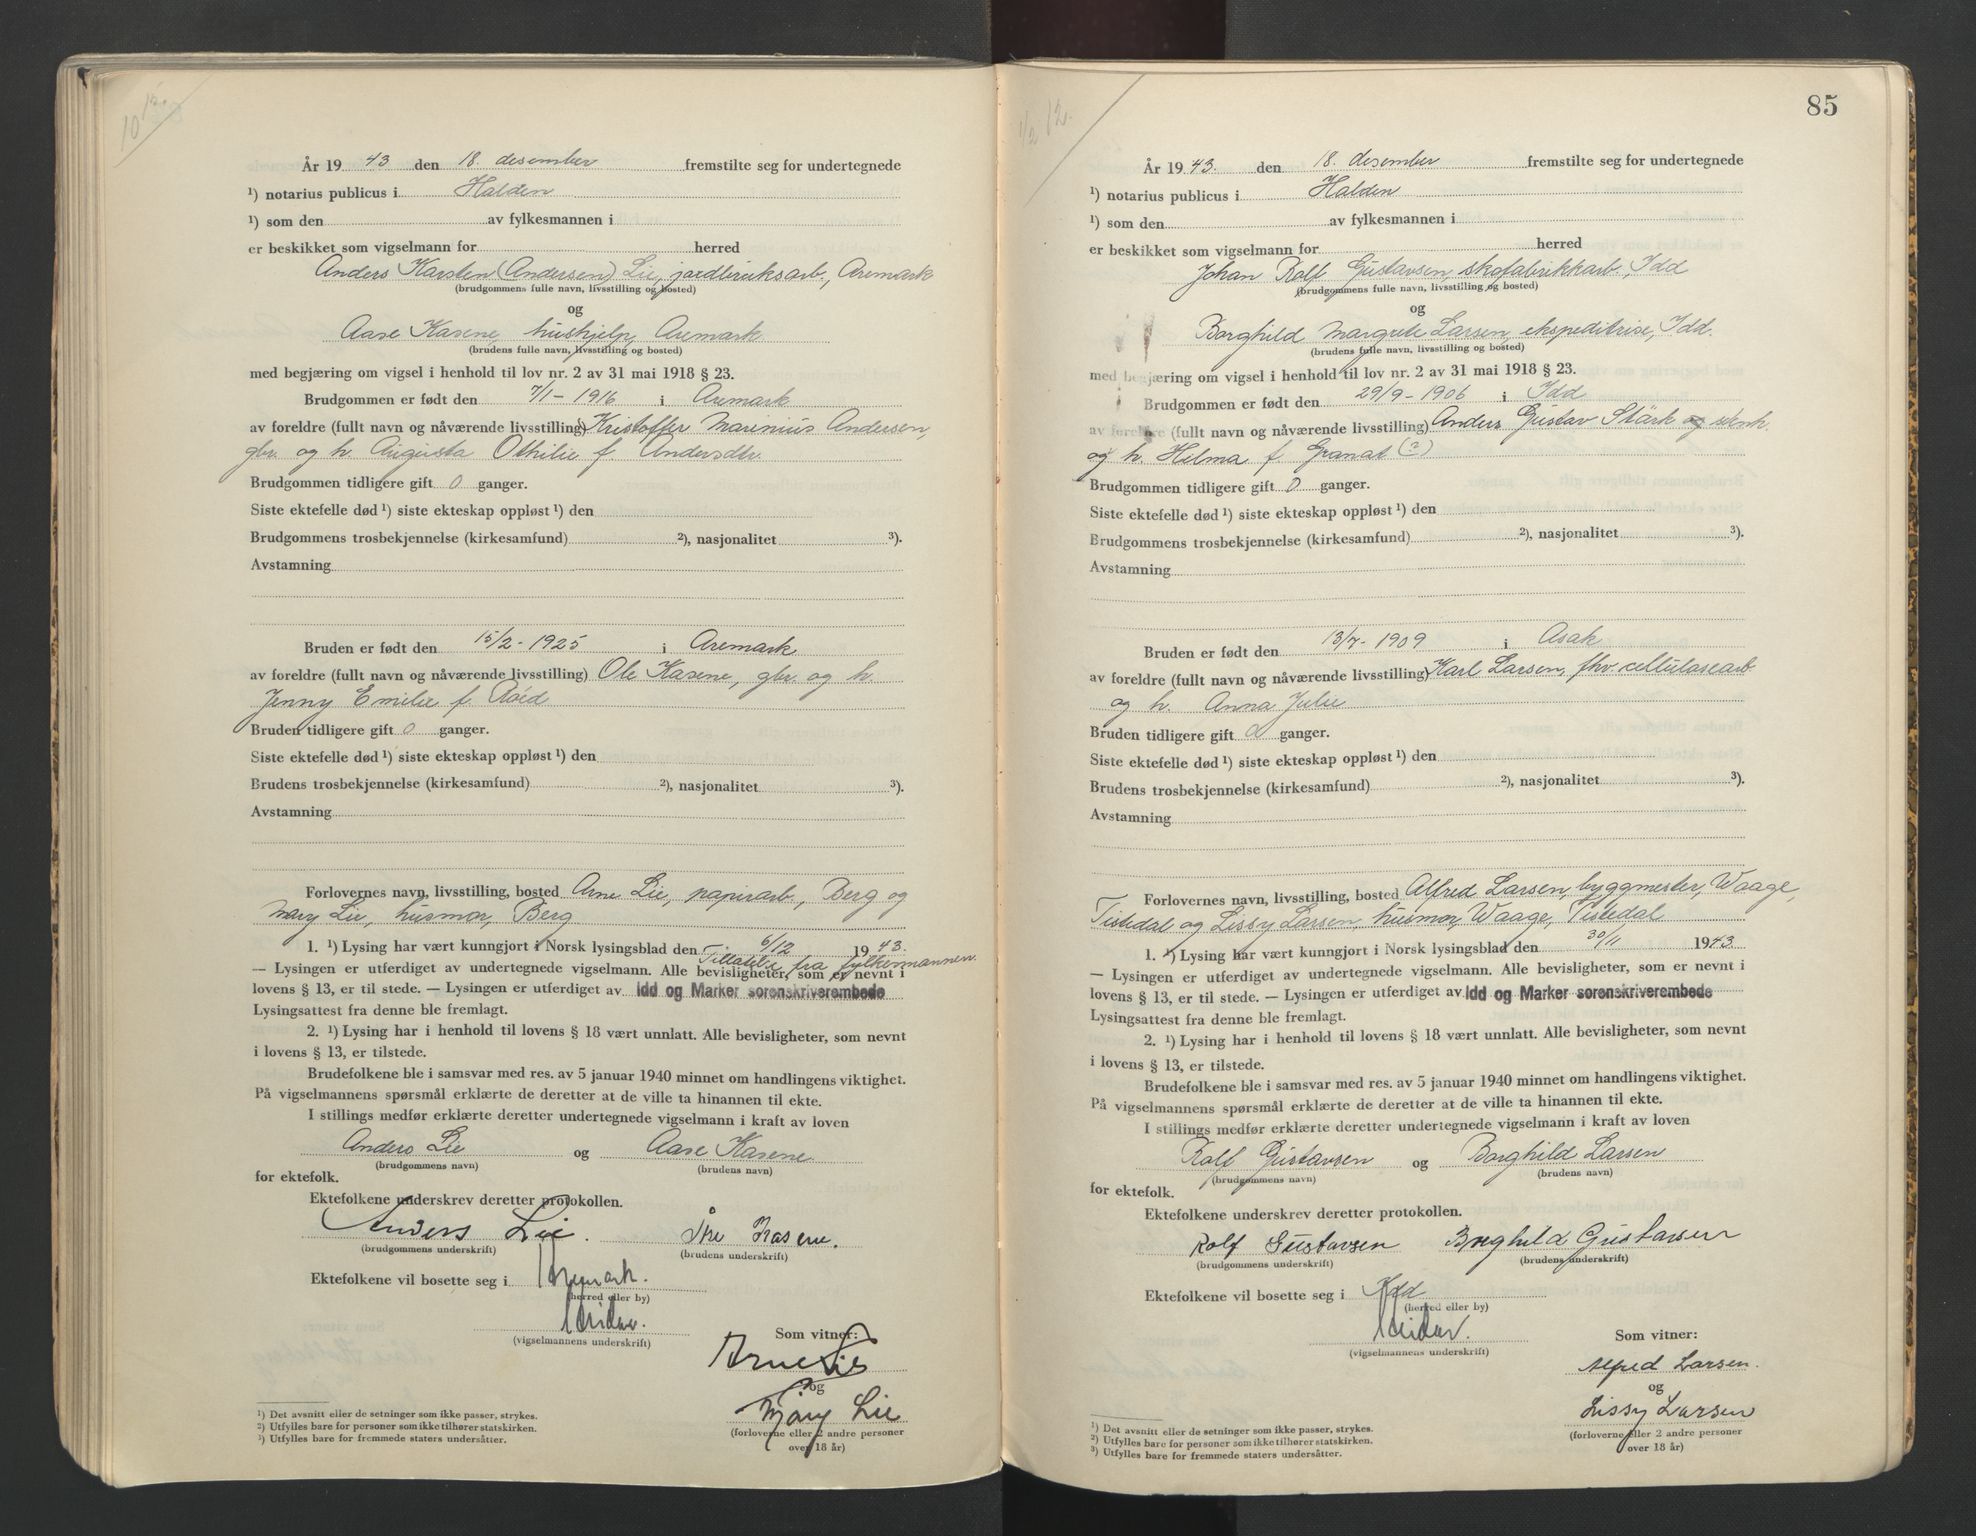 10 1/2
År 1943 den 18. desember fremstilte seg for undertegnede
¹) notarius publicus i Halden
¹) som den av fylkesmannen i
er beskikket som vigselmann for herred
Anders Karsten (Andersen) Lie, jordbruksarb., Aremark
(brudgommens fulle navn, livsstilling og bosted)
og
Aase Kasene, hushjelp, Aremark
(brudens fulle navn, livsstilling og bosted)
med begjæring om vigsel i henhold til lov nr. 2 av 31 mai 1918 § 23.
Brudgommen er født den 7/1 - 1916 i Aremark
av foreldre (fullt navn og nåværende livsstilling) Kristoffer Marinius Andersen,
gbr. og h. Augusta Othilie f. Andersdtr.
Brudgommen tidligere gift 0 ganger.
Siste ektefelle død ¹) siste ekteskap oppløst ¹) den
Brudgommens trosbekjennelse (kirkesamfund) ²), nasjonalitet ³).
Avstamning
Bruden er født den 15/2 - 1925 i Aremark
av foreldre (fullt navn og nåværende livsstilling) Ole Kasene, gbr. og h.
Jenny Emilie f. Röed
Bruden tidligere gift 0 ganger.
Siste ektefelle død ¹) siste ekteskap oppløst ¹) den
Brudens trosbekjennelse (kirkesamfund) ²), nasjonalitet ³).
Avstamning
Forlovernes navn, livsstilling, bosted Arne Lie, papirarb., Berg og
Mary Lie, husmor, Berg
1. ¹) Lysing har vært kunngjort i Norsk lysingsblad den 6/12 1943.
Tillatelse fra fylkesmannen.
— Lysingen er utferdiget av undertegnede vigselmann. Alle bevisligheter, som er nevnt i
lovens § 13, er til stede. — Lysingen er utferdiget av Idd og Marker sorenskriverembede
Lysingsattest fra denne ble fremlagt.
2. ¹) Lysing har i henhold til lovens § 18 vært unnlatt. Alle bevisligheter, som nevnt
i lovens § 13, er tilstede.
Brudefolkene ble i samsvar med res. av 5 januar 1940 minnet om handlingens viktighet.
På vigselmannens spørsmål erklærte de deretter at de ville ta hinannen til ekte.
I stillings medfør erklærte deretter undertegnede vigselmann i kraft av loven
Anders Lie og Aase Kasene
(brudgommens navn) (brudens navn)
for ektefolk.
Ektefolkene underskrev deretter protokollen.
Anders Lie. Åse Kasene.
(brudgommens underskrift) (brudens underskrift)
Ektefolkene vil bosette seg i Aremark.
(herred eller by)
(vigselmannens underskrift)
Som vitner:
Arne Lie
og
Mary Lie
(forloverne eller 2 andre personer
over 18 år)
¹) Det avsnitt eller de setninger som ikke passer, strykes.
²) Utfylles bare for personer som ikke tilhører statskirken.
³) Utfylles bare for fremmede staters undersåtter.
85
1/2 12.
År 1943. den 18. desember fremstilte seg for undertegnede
¹) notarius publicus i Halden
¹) som den av fylkesmannen i
er beskikket som vigselmann for herred
Johan Rolf Gustavsen, skofabrikkarb., Idd
(brudgommens fulle navn, livsstilling og bosted)
og
Borghild Margrete Larsen, ekspeditrise, Idd.
(brudens fulle navn, livsstilling og bosted)
med begjæring om vigsel i henhold til lov nr. 2 av 31 mai 1918 § 23.
Brudgommen er født den 29/9 - 1906 i Idd
av foreldre (fullt navn og nåværende livsstilling) Anders Gustav Stärk
og h. Hilma f. Granat (?)
Brudgommen tidligere gift 0 ganger.
Siste ektefelle død ¹) siste ekteskap oppløst ¹) den
Brudgommens trosbekjennelse (kirkesamfund) ²), nasjonalitet ³).
Avstamning
Bruden er født den 13/7 - 1909 i Asak
av foreldre (fullt navn og nåværende livsstilling) Karl Larsen, fhv. cellulosearb
og h. Anna Julie
Bruden tidligere gift 0 ganger.
Siste ektefelle død ¹) siste ekteskap oppløst ¹) den
Brudens trosbekjennelse (kirkesamfund) ²), nasjonalitet ³).
Avstamning
Forlovernes navn, livsstilling, bosted Alfred Larsen, byggmester, Waage,
Tistedal og Lissy Larsen, husmor, Waage, Tistedal
1. ¹) Lysing har vært kunngjort i Norsk lysingsblad den 30/11 1943
— Lysingen er utferdiget av undertegnede vigselmann. Alle bevisligheter, som er nevnt i
lovens § 13, er til stede. — Lysingen er utferdiget av Idd og Marker sorenskriverembede
Lysingsattest fra denne ble fremlagt.
2. ¹) Lysing har i henhold til lovens § 18 vært unnlatt. Alle bevisligheter, som nevnt
i lovens § 13, er tilstede.
Brudefolkene ble i samsvar med res. av 5 januar 1940 minnet om handlingens viktighet.
På vigselmannens spørsmål erklærte de deretter at de ville ta hinannen til ekte.
I stillings medfør erklærte deretter undertegnede vigselmann i kraft av loven
Rolf Gustavsen og Borghild Larsen
(brudgommens navn) (brudens navn)
for ektefolk.
Ektefolkene underskrev deretter protokollen.
Rolf Gustavsen Borghild Gustavsen
(brudgommens underskrift) (brudens underskrift)
Ektefolkene vil bosette seg i Idd
(herred eller by)
(vigselmannens underskrift)
Som vitner:
Alfred Larsen.
og
Lissy Larsen
(forloverne eller 2 andre personer
over 18 år)
¹) Det avsnitt eller de setninger som ikke passer, strykes.
²) Utfylles bare for personer som ikke tilhører statskirken.
³) Utfylles bare for fremmede staters undersåtter.